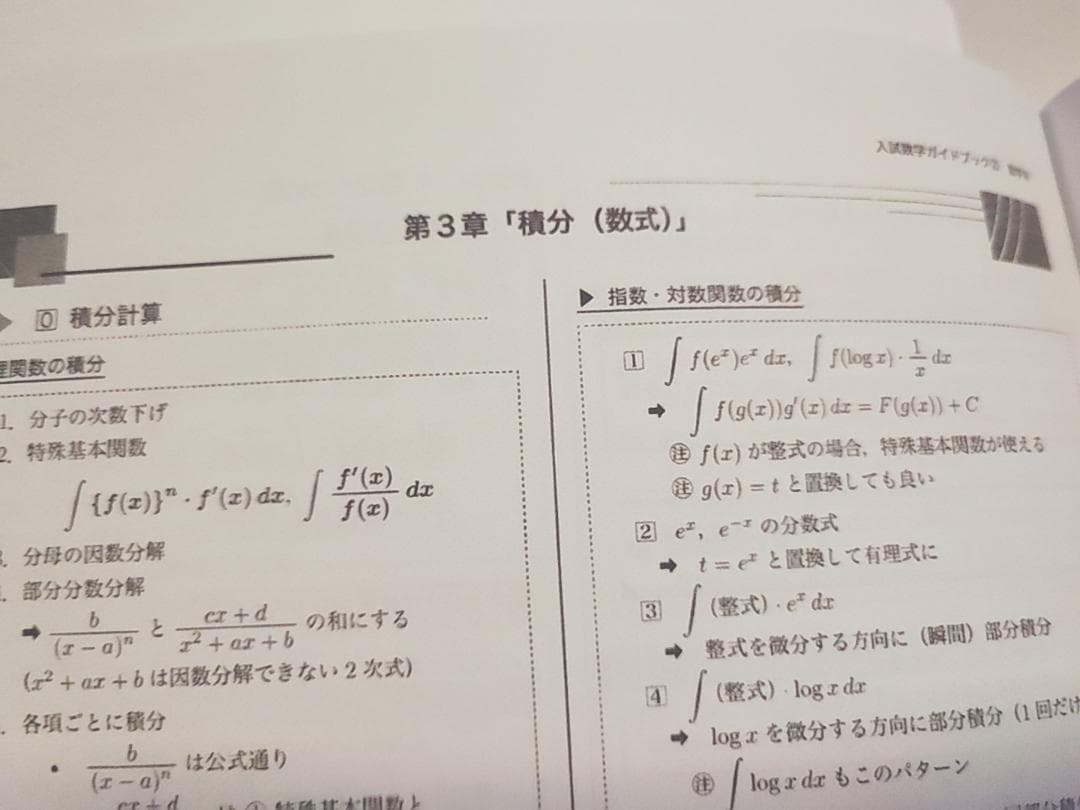 入試数学ガイドブック
第3章「積分（数式）」
0 積分計算
関数の積分
1. 分子の次数下げ
2. 特殊基本関数
∫{f(x)}ⁿ・f′(x) dx, ∫ f′(x)/f(x) dx
3. 分母の因数分解
部分分数分解
➡ b/(x−a)ⁿ と (cx+d)/(x²+ax+b) の和にする
(x²+ax+b は因数分解できない 2 次式)
各項ごとに積分
• b/(x−a)ⁿ は公式通り
cx+d 特殊基本関数と
▶ 指数・対数関数の積分
1 ∫ f(eˣ)eˣ dx, ∫ f(log x)・1/x dx
➡ ∫ f(g(x))g′(x) dx = F(g(x)) + C
㊟ f(x) が整式の場合，特殊基本関数が使える
㊟ g(x) = t と置換しても良い
2 eˣ，e⁻ˣ の分数式
➡ t = eˣ と置換して有理式に
3 ∫ (整式)・eˣ dx
➡ 整式を微分する方向に（瞬間）部分積分
4 ∫ (整式)・log x dx
➡ log x を微分する方向に部分積分（1 回だけ
㊟ ∫ log x dx もこのパターン